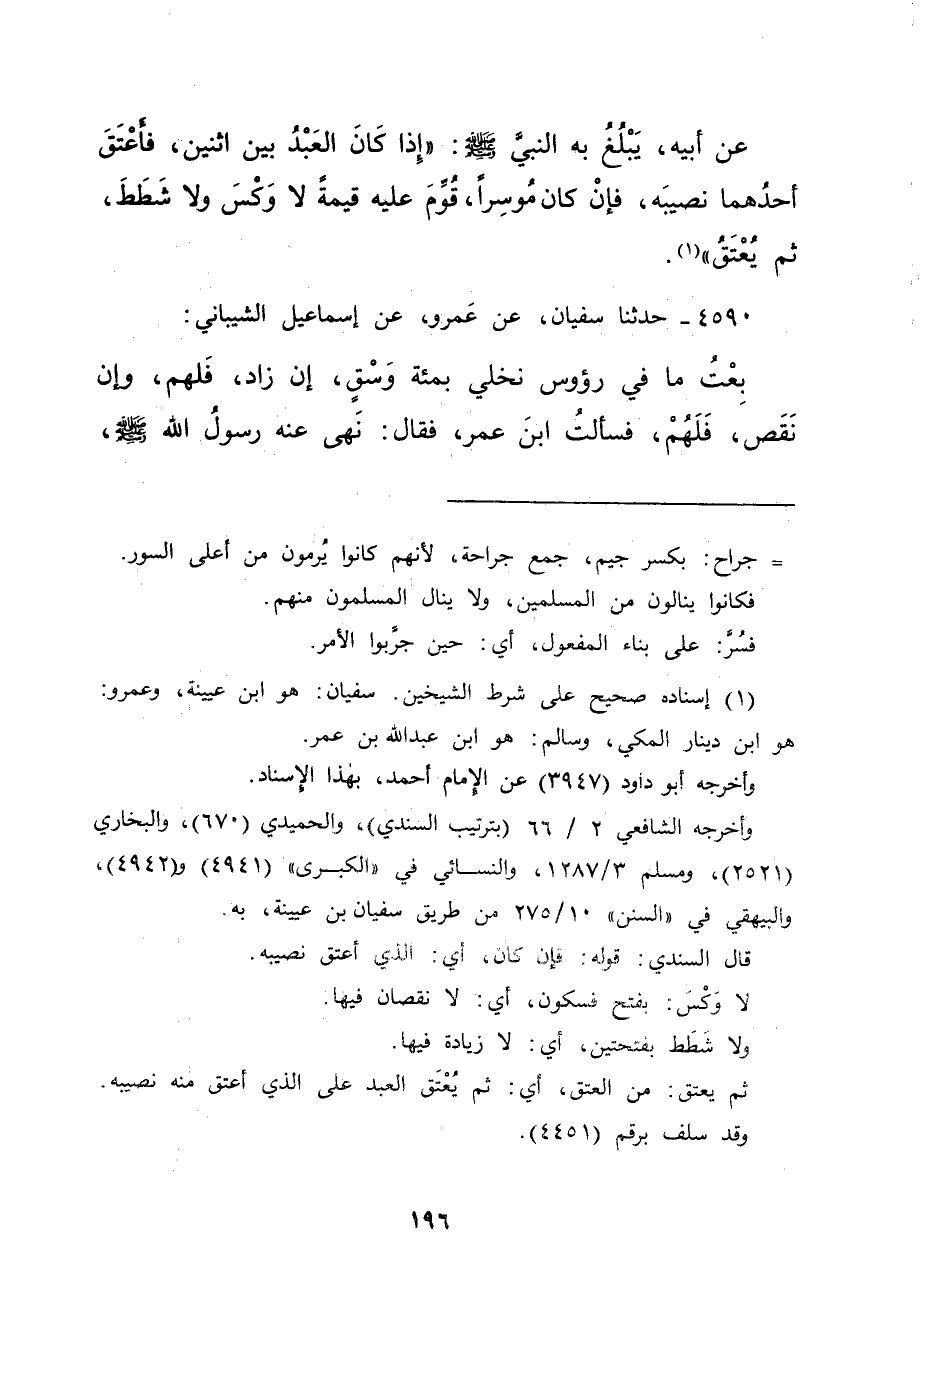 عن أبيه، يَبْلُغُ به النبيَّ ﷺ: «إِذا كَانَ العَبْدُ بين اثنين، فأَعْتَقَ
أحدُهما نصيبَه، فإنْ كان مُوسِراً، قُوِّمَ عليه قيمةً لا وَكْسَ ولا شَطَطَ،
ثم يُعْتَقُ»(١).
٤٥٩٠ ـ حدثنا سفيان، عن عَمرو، عن إسماعيل الشيباني:
بِعْتُ ما في رؤوس نخلي بمئة وَسْقٍ، إن زاد، فَلهم، وإن
نَقَص، فَلَهُمْ، فسألتُ ابنَ عمر، فقال: نَهى عنه رسولُ الله ﷺ،
= جراح: بكسر جيم، جمع جراحة، لأنهم كانوا يُرمون من أعلى السور.
فكانوا ينالون من المسلمين، ولا ينال المسلمون منهم.
فسُرَّ: على بناء المفعول، أي: حين جرَّبوا الأمر.
(١) إسناده صحيح على شرط الشيخين. سفيان: هو ابن عيينة، وعمرو:
هو ابن دينار المكي، وسالم: هو ابن عبدالله بن عمر.
وأخرجه أبو داود (٣٩٤٧) عن الإمام أحمد، بهٰذا الإسناد.
وأخرجه الشافعي ٢ / ٦٦ (بترتيب السندي)، والحميدي (٦٧٠)، والبخاري
(٢٥٢١)، ومسلم ١٢٨٧/٣، والنسائي في «الكبرى» (٤٩٤١) و(٤٩٤٢)،
والبيهقي في «السنن» ٢٧٥/١٠ من طريق سفيان بن عيينة، به.
قال السندي: قوله: فإن كان، أي: الذي أعتق نصيبه.
لا وَكْسَ: بفتح فسكون، أي: لا نقصان فيها.
ولا شَطَط بفتحتين، أي: لا زيادة فيها.
ثم يعتق: من العتق، أي: ثم يُعْتَق العبد على الذي أعتق منه نصيبه.
وقد سلف برقم (٤٤٥١).
١٩٦